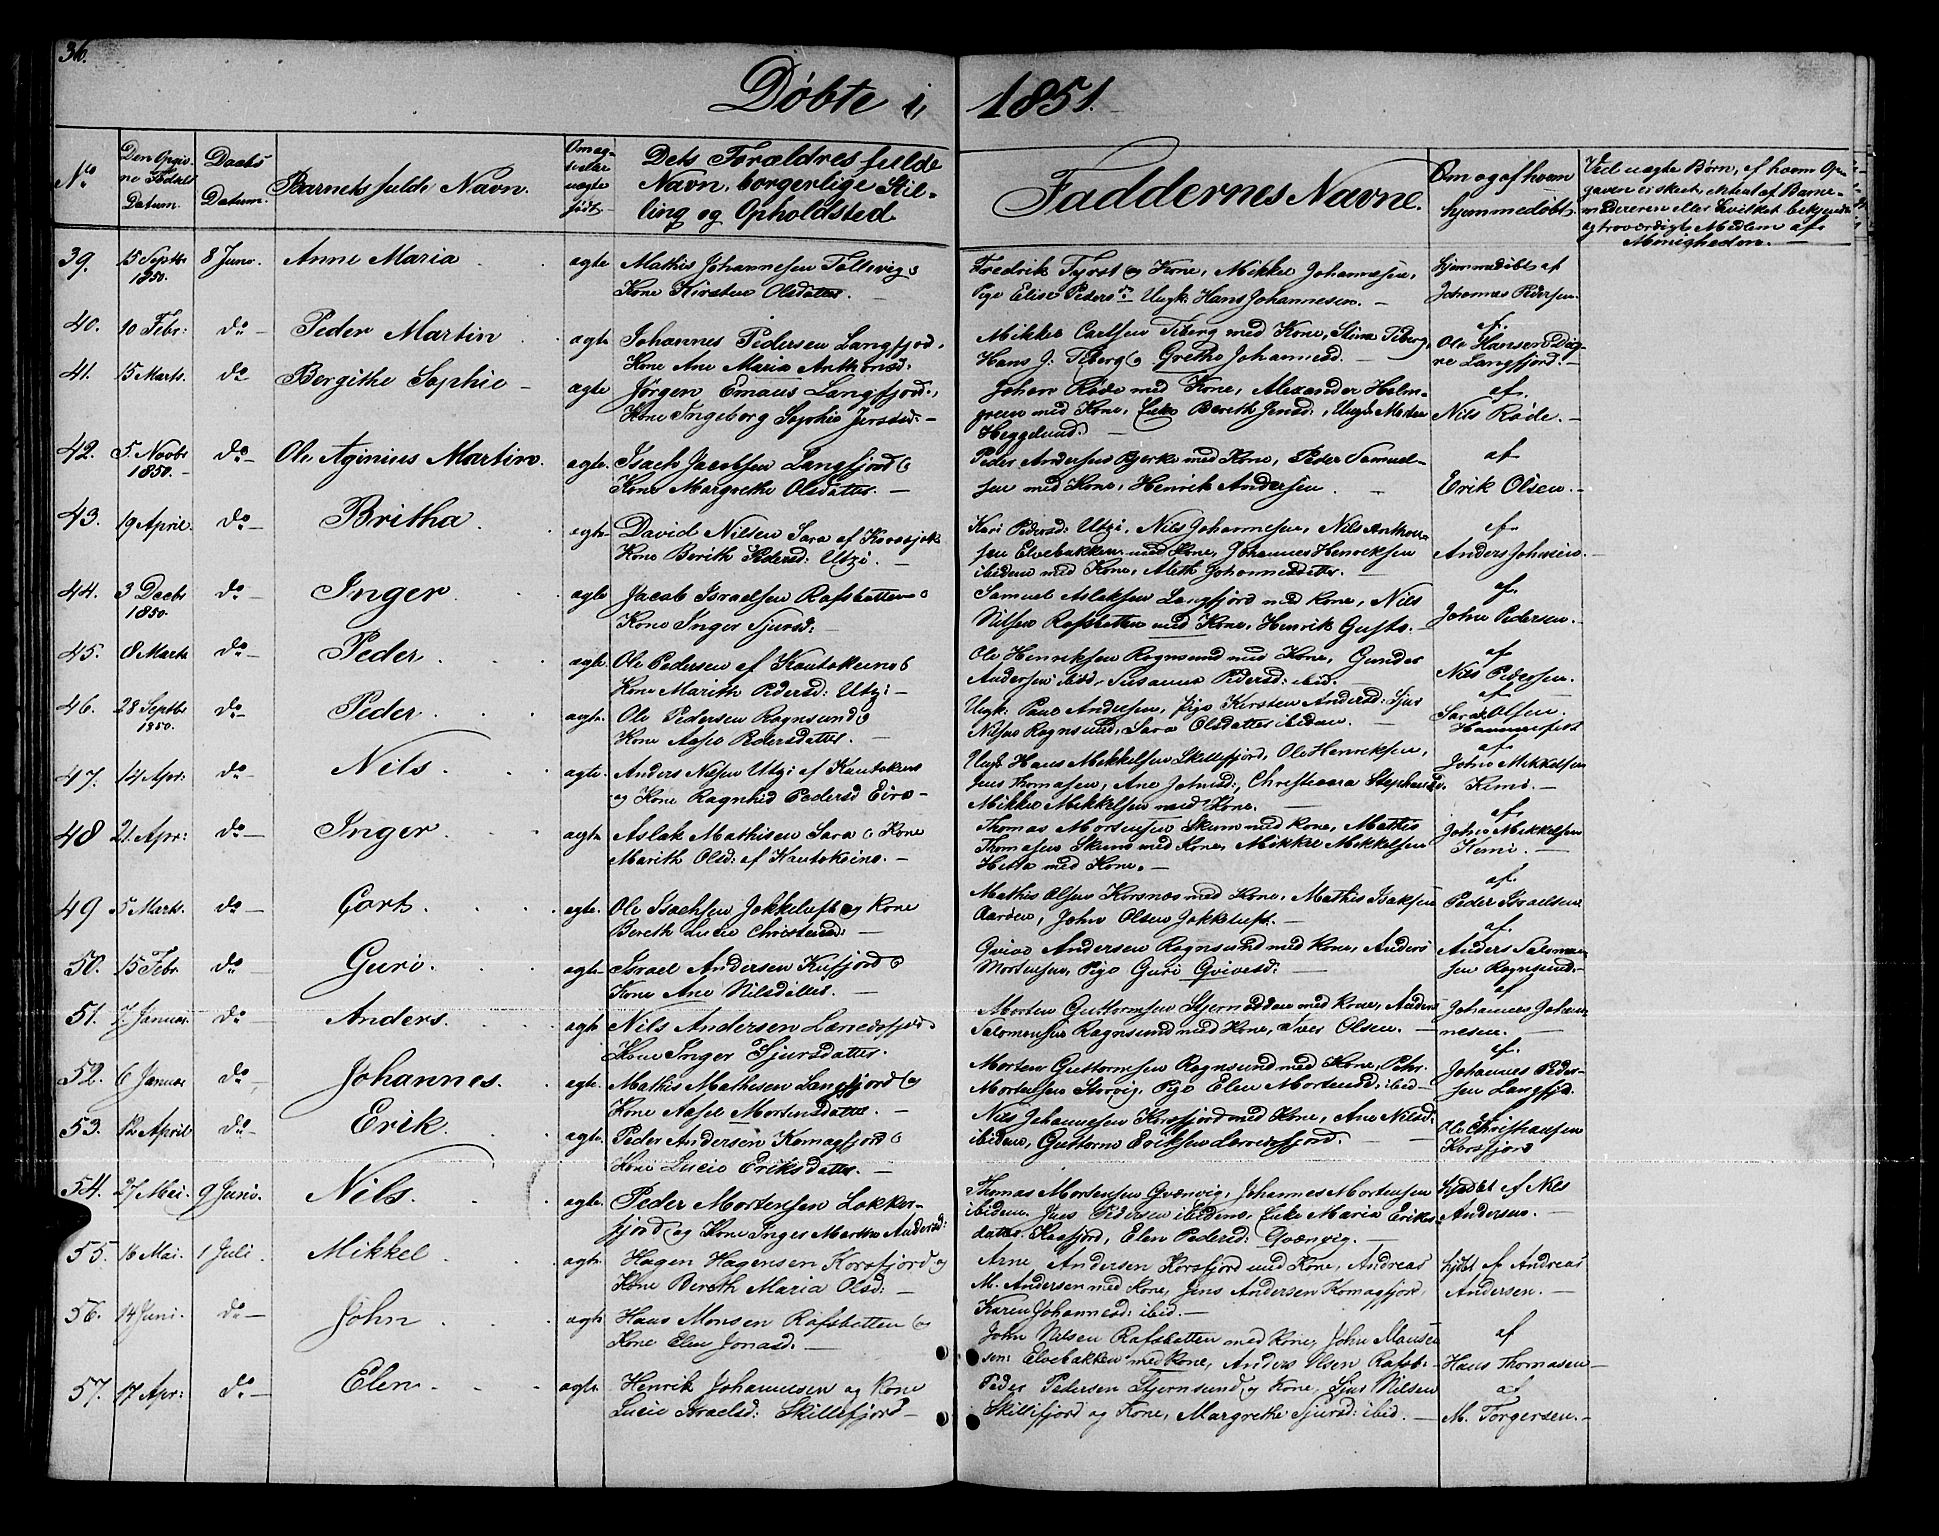 36.
Døbte i 1851.
No
Den Opgivne Fødsels Datum.
Daabs Datum.
Barnets fulde Navn.
Om ægte eller uægte født
Dets Forældres fulde Navn, borgerlige Stilling og Opholdsted
Faddernes Navne.
Om og af hvem hjemmedøbt
Ved uægte Børn, af hvem Opgaven er skeet,
Menigheden.
39. 15 Septbr 1850. 8 Juni. Anne Maria ægte Mathis Johannesen Tollevig og
Kone Kirsten Olsdatter. —
Fredrik Tyrst og Kone, Mikkel Johannesen,
Pige Elise Peders Dr Ungk: Hans Johannesen. —
hjemmedøbt af
Johannes Pedersen.
40. 10 Febr: do — Peder Martin ægte Johannes Pedersen Langfjord,
Kone Ane Maria Anthonsd:
Mikkel Carlsen Teberg med Kone, Stina Teberg,
Hans J. Teberg og Grethe Johannesd. —
af
Ole Hansen
Langfjord. —
41. 15 Marts. do Bergithe Sophie — ægte Jørgen Emaus Langfjord,
Kone Ingeborg Sophie Jensd: —
Johan Røde med Kone, Alexander Holmgreen med Kone, Enke Bereth Jensd:, Ungk Morten
Heggelund. —
af
Nils Røde. —
42. 5. Novbr 1850. — do — Ole Aginius Martin. ægte. Isach Jacobsen Langfjord og
Kone Margrethe Olsdatter. —
Peder Andersen Bjerke med Kone, Peder Samuelsen med Kone, Henrik Andersen. —
af
Erik Olsen. —
43. 19 April do — Britha. ægte David Nilsen Sara af Karasjok
Kone Berith Pedersd: Utzi. —
Kari Pedersd: Utzi, Nils Johannesen, Nils Anthonsen Elvebakken med Kone, Johannes Henriksen
ibidem med Kone, Aleth Johannesdatter. —
af
Anders Johnsen. —
44. 3 Decbr 1850. do — Inger. ægte Jacob Israelsen Rafsbotten og
Kone Inger Sjursd: —
Samuel Aslaksen Langfjord med Kone, Nils
Nilsen Rafsbotten med Kone, Henrik Gusto. —
af
John Pedersen. —
45. 8 Marts do — Peder ægte. Ole Pedersen af Kautokeino og
Kone Marith Pedersd: Utzi —
Ole Henriksen Rognsund med Kone, Gunder
Andersen ibid, Susanna Pedersd: ibid. —
af
Nils Pedersen.
46. 28 Septbr 1850. do — Peder. ægte. Ole Pedersen Rognsund og
Kone Aase Pedersdatter. —
Ungk: Paul Andersen, Pige Kirsten Andersd: Sjur
Nilsen Rognsund, Sara Olsdatter ibidem. —
af
Sara Olsen.
Hammerfest
47. 14 Apr: do Nils. ægte. Anders Nilsen Utzi af Kautokeino
og Kone Ragnhild Pedersd Eira —
Ungk Hans Mikkelsen Skillefjord, Ole Henriksen,
Jens Thomasen, Ane Johnsd:, Christiana Stephansd
Mikkel Mikkelsen med Kone. —
af
John Mikkelsen
Kemi. —
48 21. Apr: do — Inger ægte. Aslak Mathisen Sara og Kone
Marith Olsd: af Kautokeino. —
Thomas Mortensen Skum med Kone, Mathis
Thomasen Skum med Kone, Mikkel Mikkelsen
Hetta med Kone. —
af
John Mikkelsen
Kemi. —
49 5 Marts. do — Gort. ægte. Ole Isachsen Jokkeluft og Kone
Bereth Lucie Christensd: —
Mathis Olsen Korsnæs med Kone, Mathis Isaksen
Aarøen, John Olsen Jokkeluft. —
af
Peder Israelsen
50. 15 Febr. do Guri. ægte. Israel Andersen Kufjord og
Kone Ane Nilsdatter. —
Qvive Andersen Rognsund med Kone, Anders
Mortensen, Pige Guri Qvivesd: —
af
Anders Salomonsen Rognsund. —
51. 7 Januar. do — Anders. ægte Nils Andersen Lanesfjord
Kone Inger Sjursdatter. —
Morten Guttormsen Stjernødden med Kone, Anders
Salomonsen Rognsund med Kone, Iver Olsen. —
af
Johannes Johannesen. —
52. 6 Januar do — Johannes. ægte. Mathis Mathisen Langfjord og
Kone Aase Mortensdatter. —
Morten Guttormsen Rognsund med Kone, Pehr
Mortensen Storvig, Pige Elen Mortensd: ibid —
af
Johannes Pedersen Langfjd.
53. 12 April do — Erik. ægte. Peder Andersen Komagfjord og
Kone Lucie Eriksdatter. —
Nils Johannesen Korsfjord med Kone, Ane Nilsd:
ibidem, Guttorm Eriksen Lerresfjord. —
Ole Christiansen
Korsfjord
54. 27 Mei. 9 Juni. Nils. ægte. Peder Mortensen Lokkerfjord og Kone Inger Marthe Andersd:
Thomas Mortensen Qvænvig, Johannes Mortensen
ibidem, Jens Pedersen ibidem, Enke Maria Eriksdatter Kaafjord, Elen Pedersd: Qvænvig. —
hjdbt af Nils
Andersen. —
55. 16 Mai. 1 Juli. Mikkel ægte. Hagen Hagensen Korsfjord og
Kone Bereth Maria Olsd: —
Arne Andersen Korsfjord med Kone, Andreas
M. Andersen med Kone, Jens Andersen Komagfjord,
Karen Johannesd: ibid. —
hjdbt af Andreas
Andersen. —
56. 14 Juni. do — John ægte Hans Monsen Rafsbotten og
Kone Elen Jonasd: —
John Nilsen Rafsbotten med Kone, John Mansensen: Elvebakken med Kone, Anders Olsen Rafsb: —
af
Hans Thomasen —
57. 17 Apr: do — Elen. ægte Henrik Johannesen og Kone
Lucie Israelsd: Skillefjord —
Peder Pedersen Stjernsund og Kone, Sjur Nilsen
Skillefjord og Kone, Margrethe Sjursd: ibid. —
af
M. Torgersen. —